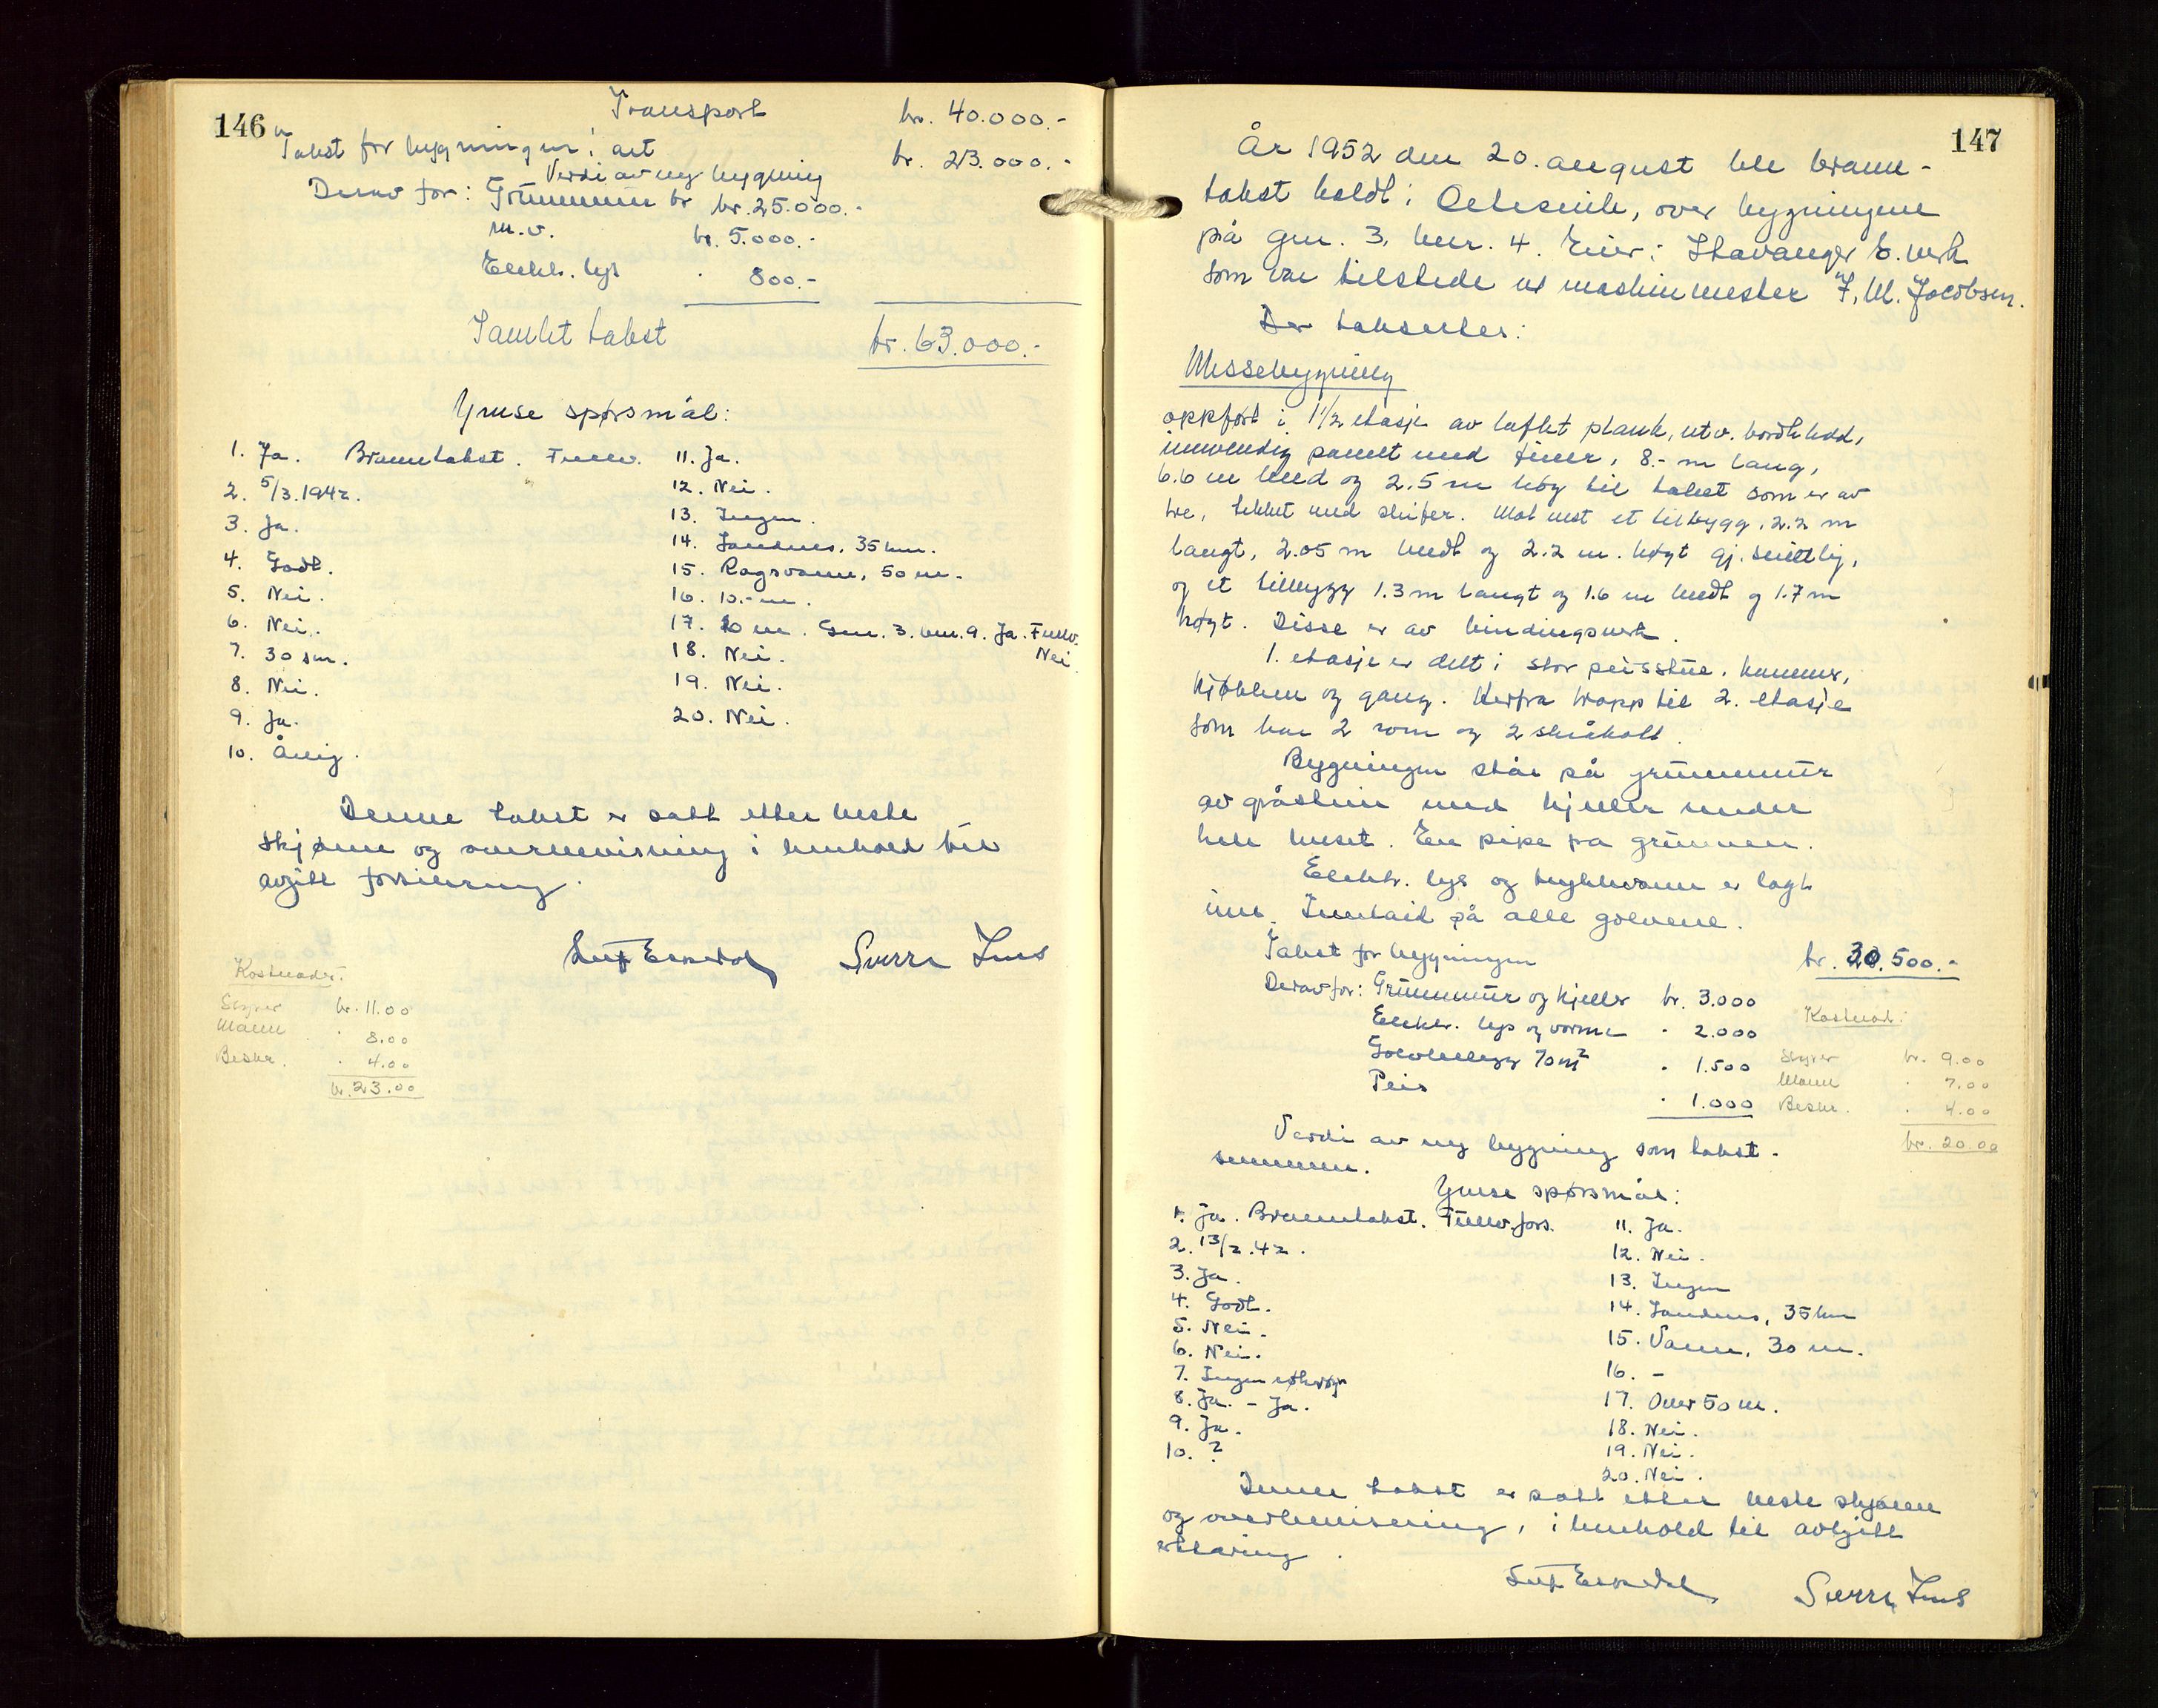 146
Transport kr. 40.000.-
Takst for bygningen i alt kr. 23.000.-
Verdi av ny bygning
Derav for: Grunnmur kr kr. 25.000.-
m.v. kr. 5.000.-
Elektr. lys 800.-
Samlet takst kr. 63.000.-
Ymse spørsmål:
1. Ja. Branntakst. Fullv.
2. 5/3.1942.
3. Ja.
4. Godt.
5. Nei.
6. Nei.
7. 30 sm.
8. Nei.
9. Ja.
10. Årlig.
11. Ja.
12. Nei.
13. Ingen.
14. Sandnes, 35 km.
15. Ragsvann, 50 m.
16. 10.- m.
17. 20 m. Gnr. 3. bnr. 9. Ja. Fullv.
Nei.
18. Nei.
19. Nei.
20. Nei.
Denne takst er satt etter beste
skjønn og overbevisning i henhold til
avgitt forsikring.
Sverre
Kostnader:
Styrer kr. 11.00
Mann " 8.00
Beskr. " 4.00
kr. 23.00
147
År 1952 den 20. august ble brann-
takst holdt i Oltesvik, over bygningene
på gnr. 3, bnr. 4. Eier: Stavanger E.verk
som var tilstede ved maskinmester F. M. Jacobsen.
Der taksertes:
Messebygning
oppført i 1 1/2 etasje av laftet plank, utv. bordkledd,
innvendig panelt med finer, 8.- m lang,
6.6 m bred og 2.5 m høg til taket som er av
tre, tekket med skifer. Mot vest et tilbygg, 2.2 m
langt, 2.05 m bredt og 2.2 m. høgt gj.snittlig,
og et tilbygg 1.3 m langt og 1.6 m bredt og 1.7 m
høgt. Disse er av bindingsverk.
1. etasje er delt i stor peisstue, kammer,
kjøkken og gang. Herfra trapp til 2. etasje
som har 2 rom og 2 skråkott.
Bygningen står på grunnmur
av gråstein med kjeller under
hele huset. En pipe fra grunnen.
Elektr. lys og trykkvann er lagt
inn. Innlaid på alle golvene.
Takst for bygningen kr. 30.500.-
Derav for: Grunnmur og kjeller kr. 3.000
Elektr. lys og varme " 2.000
Golvbelegg 70 m² " 1.500
Peis " 1.000
Kostnad:
Styrer kr. 9.00
Mann " 7.00
Beskr. " 4.00
kr. 20.00
Verdi av ny bygning som takst-
summen.
Ymse spørsmål:
1. Ja. Branntakst. Fullv.fors.
2. 13/2.42.
3. Ja.
4. Godt.
5. Nei.
6. Nei.
7. Ingen
8. Ja. - Ja.
9. Ja.
10. ?
11. Ja.
12. Nei.
13. Ingen
14. Sandnes, 35 km
15. Vann, 30 m.
16. -
17. Over 50 m.
18. Nei.
19. Nei.
20. Nei.
Denne takst er satt etter beste skjønn
og overbevisning, i henhold til avgitt
erklæring.
Sverre